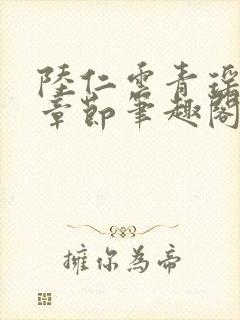 陸仁雲青瑶
章節筆趣閣
擁你為帝